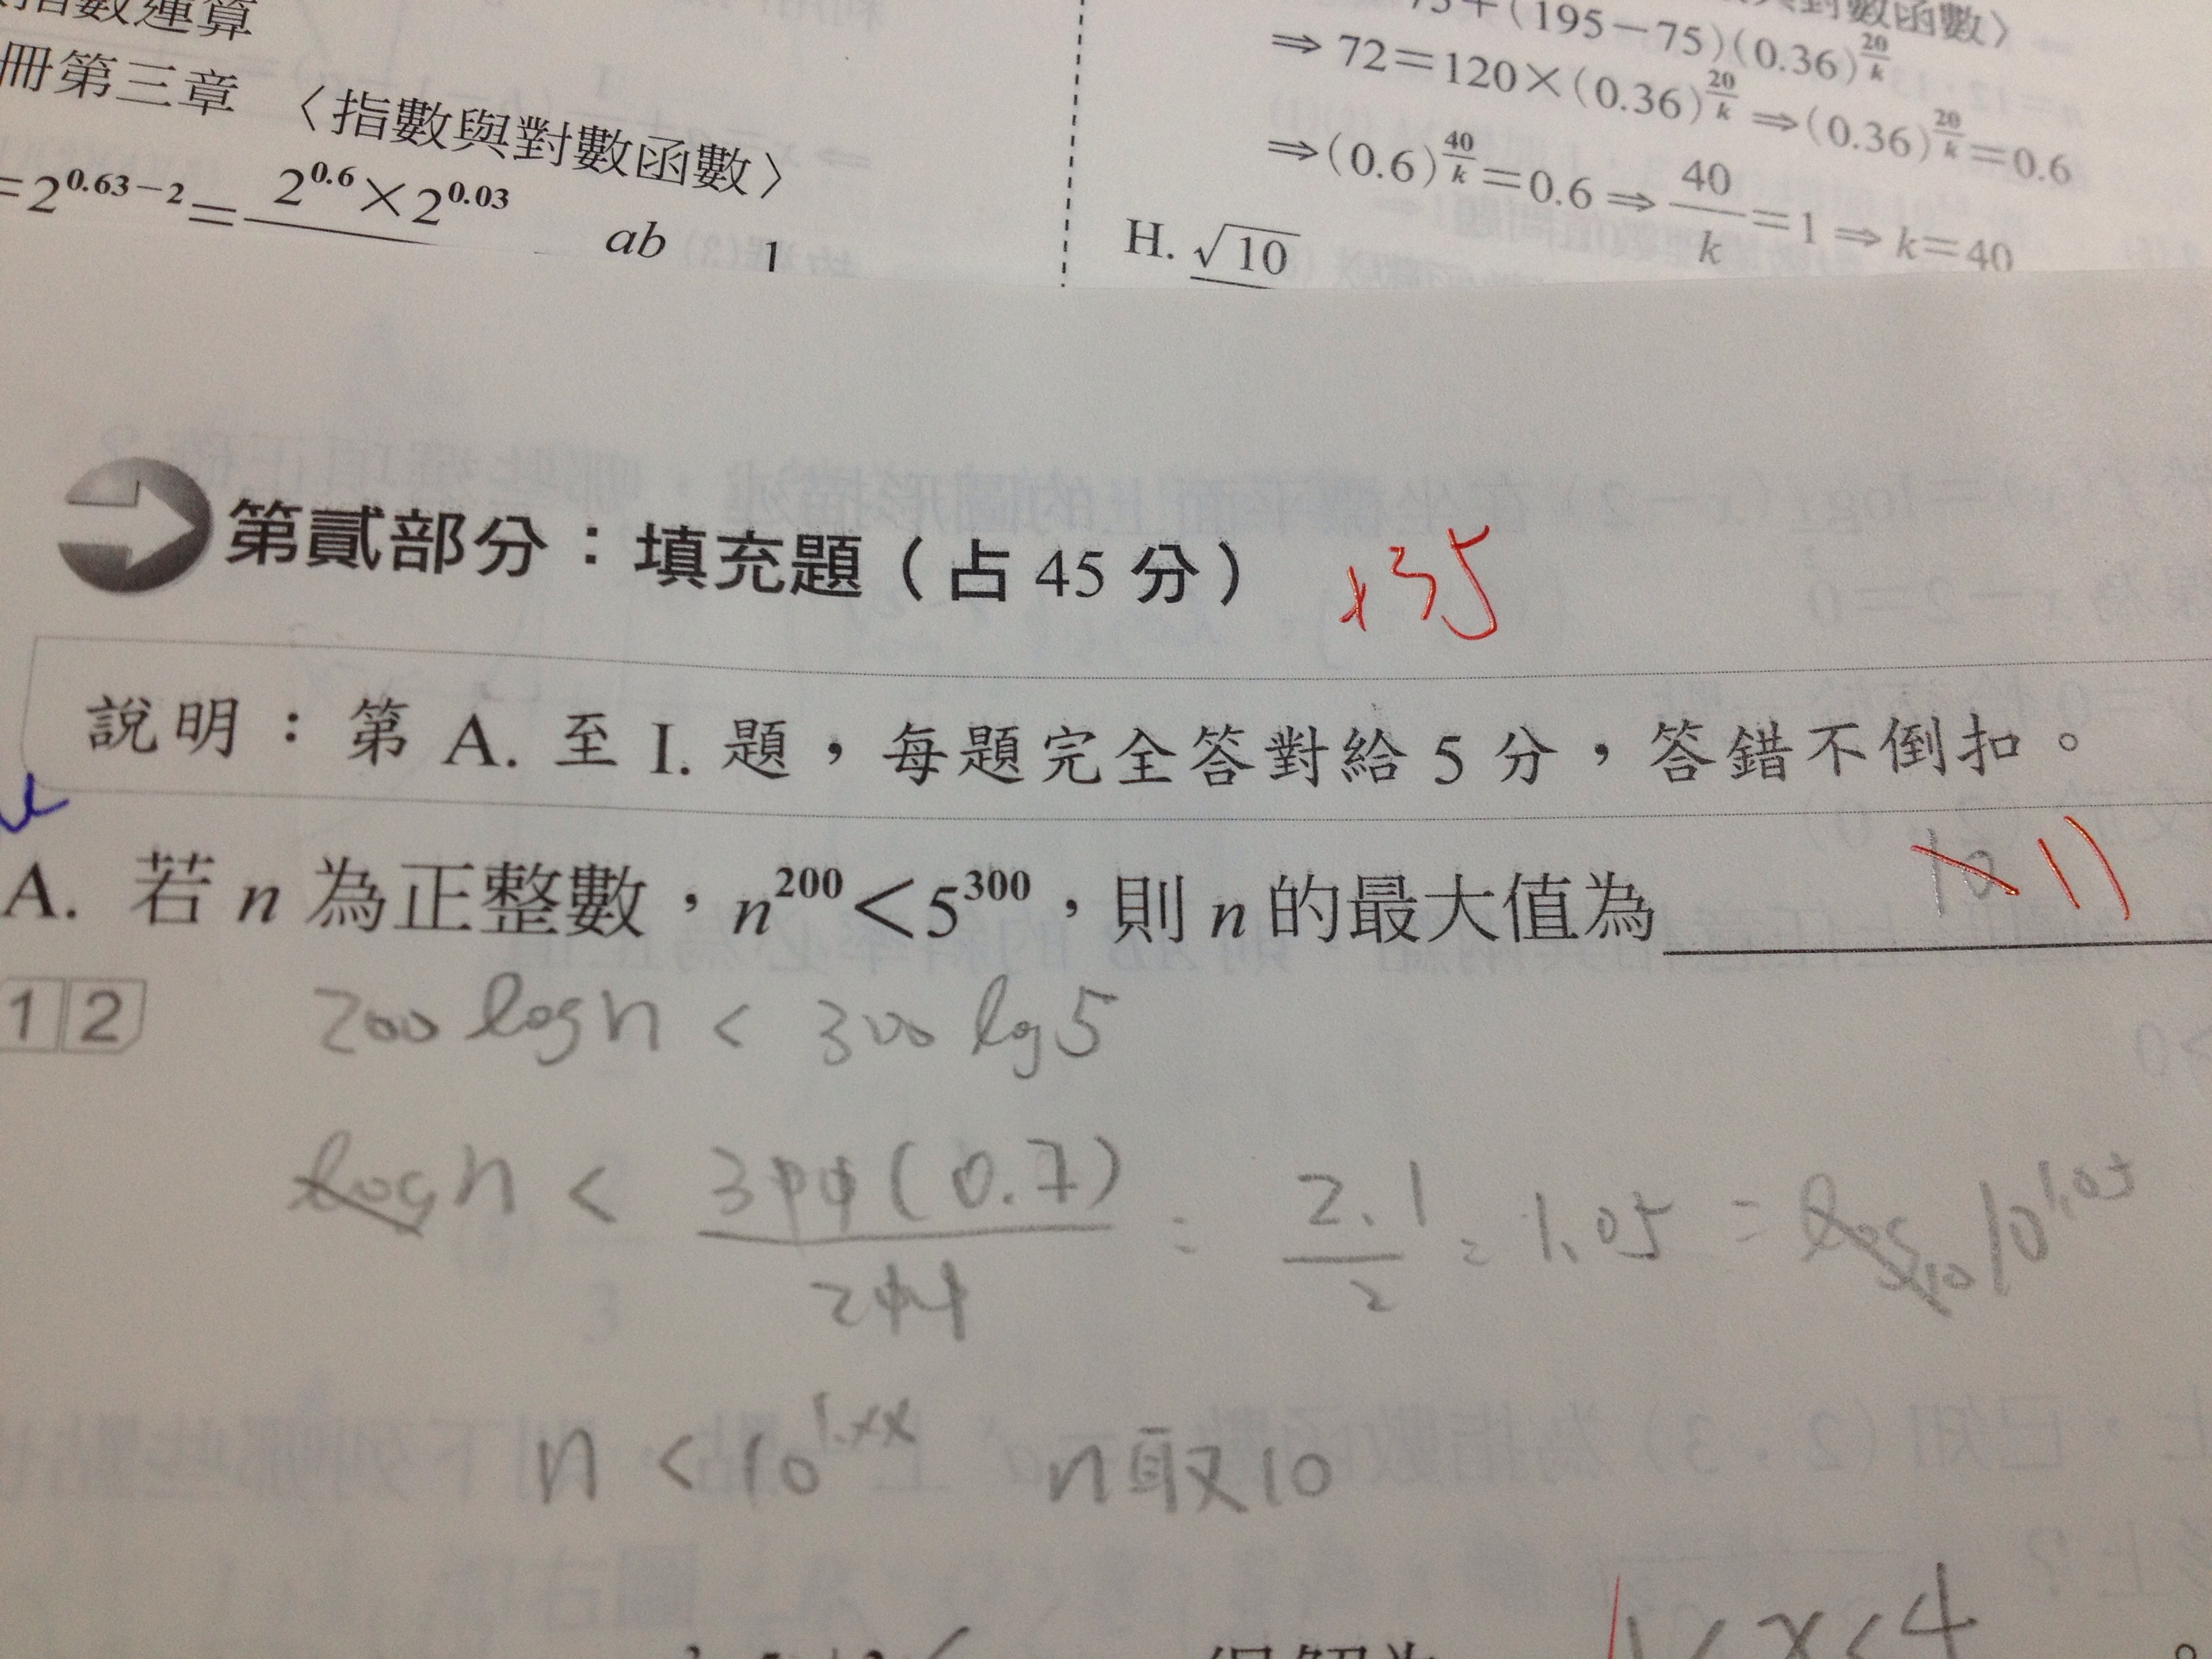 指數運算
冊第三章〈指數與對數函數〉
=2^{0.63-2}=2^{0.6}×2^{0.03}
ab 1
對數函數〉
(195-75)(0.36)^{20/k}
⇒72=120×(0.36)^{20/k}⇒(0.36)^{20/k}=0.6
⇒(0.6)^{40/k}=0.6⇒40/k=1⇒k=40
H. √10
第貳部分:填充題(占45分) +35
說明:第A.至I.題,每題完全答對給5分,答錯不倒扣。
A. 若n為正整數,n^{200}<5^{300},則n的最大值為 10 11
12 200 log n < 300 log 5
log n < 300(0.7)/200 = 2.1/2 = 1.05 = log_{10} 10^{1.05}
n < 10^{1.xx} n取10
1<x<4